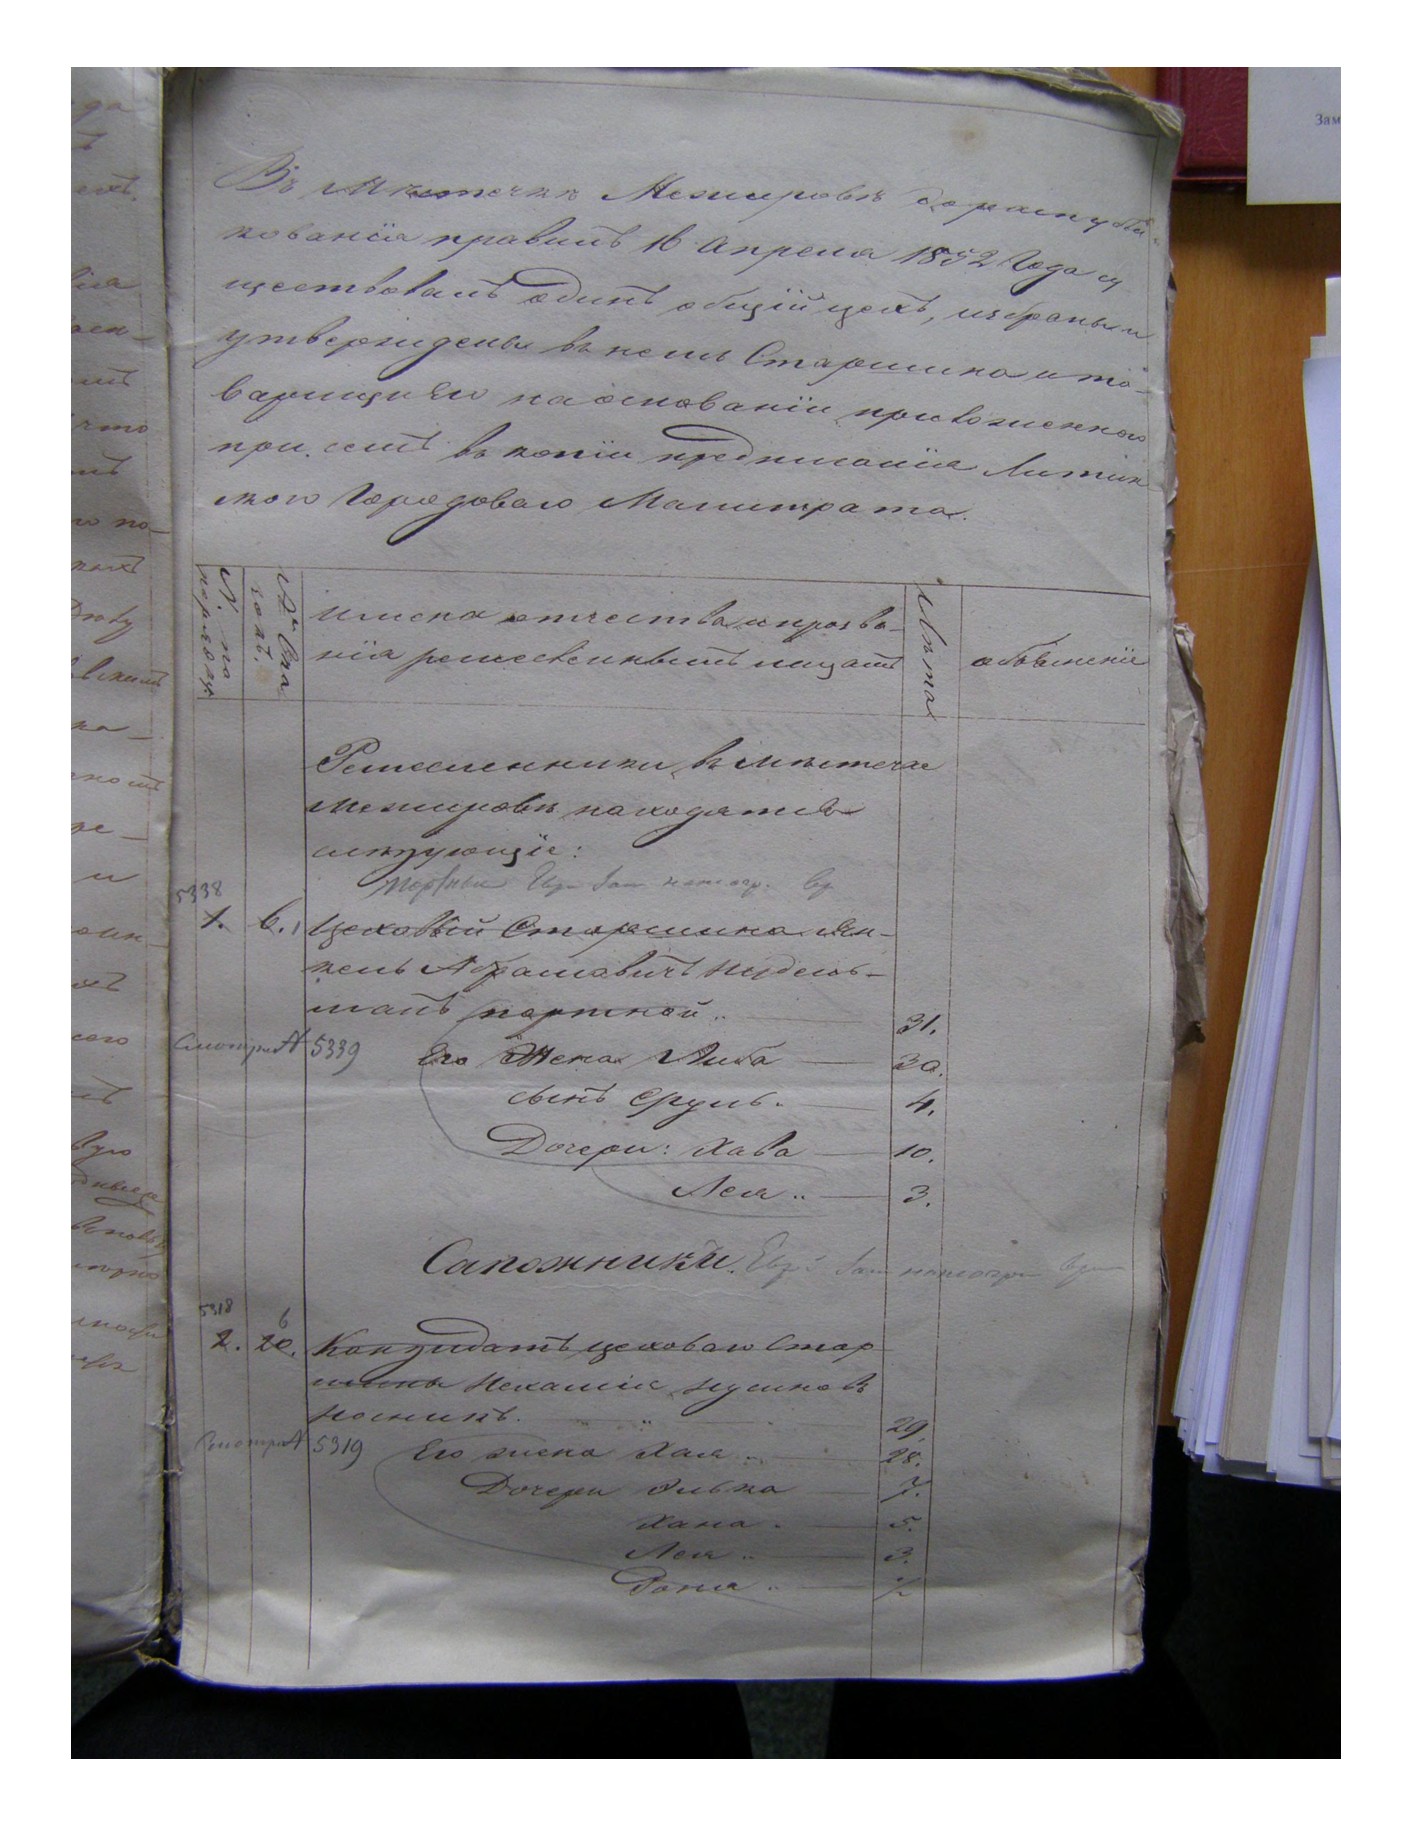 Въ Мѣстечкѣ Межировѣ до распубли-
кованія правилъ 16 Апреля 1852 Года су
ществовалъ одинъ общій цехъ, избраны и
утверждены въ немъ Старшина и то-
варищи Его на основаніи приложеннаго
при семъ въ копіи предписанія Литин
скаго Городоваго Магистрата.
№ по порядку
№ Сказокъ.
Имена отчества и прозва-
нія ремесленныхъ лицамъ
Лѣта
объясненіе
Ремесленники въ мѣстечкѣ
Межировѣ находятся
слѣдующіе:
5338
1. 6. Цеховый Старшина Ян-
кель Абрамовичъ Нудель-
манъ портной .. 31.
Смотри № 5339 Его Жена Либа 30.
сынъ Сруль. 4.
Дочери: Хава 10.
Лея .. 3.
Сапожники.
5318
6
2. 20. Кандидатъ цеховаго Стар
шины Нехамія
29.
Смотри № 5319 Его жена Хая .. 28.
Дочери Элька 7.
Хана . 5.
Лея .. 3.